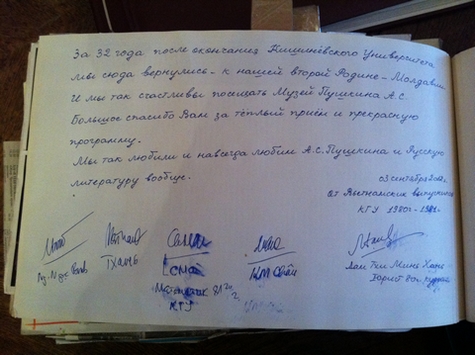 За 32 года после окончания Кишинёвского Университета
мы сюда вернулись - к нашей второй Родине - Молдавии
И мы так счастливы посещать Музей Пушкина А.С.
Большое спасибо Вам за тёплый приём и прекрасную
программу.
Мы так любили и навсегда любим А.С. Пушкина и Русскую
литературу вообще.
03 сентября
От Вьетнамских выпускников
КГУ 1980г.-
Тхань
КГУ
Юрист